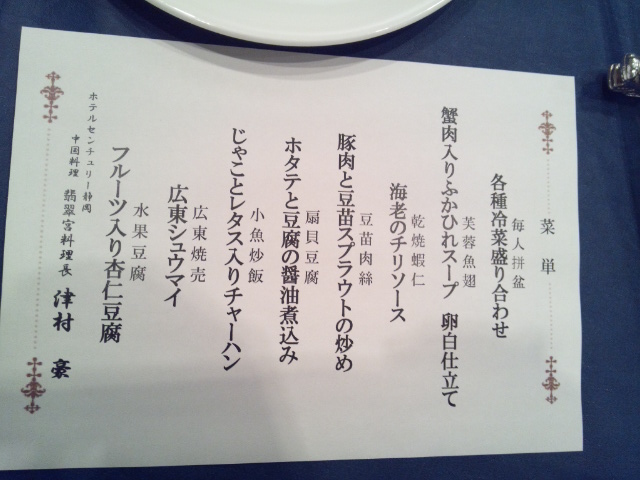 菜単
毎人拼盆
各種冷菜盛り合わせ
芙蓉魚翅
蟹肉入りふかひれスープ 卵白仕立て
乾焼蝦仁
海老のチリソース
豆苗肉絲
豚肉と豆苗スプラウトの炒め
扇貝豆腐
ホタテと豆腐の醤油煮込み
小魚炒飯
じゃことレタス入りチャーハン
広東焼売
広東シュウマイ
水果豆腐
フルーツ入り杏仁豆腐
ホテルセンチュリー静岡
中国料理 翡翠宮料理長 津村 豪